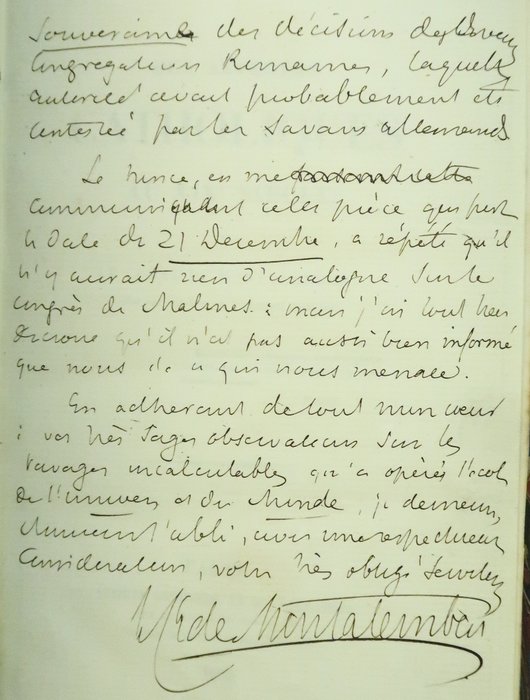 souveraine des décisions des diverses
Congrégations Romaines, laquelle
autorité avait probablement été
contestée par les savans allemands
Le nonce, en me
communiquant cette pièce qui porte
la date du 21 Decembre, a répété qu'il
n'y aurait rien d'analogue sur le
congrès de Malines : mais j'ai tout lieu
de croire qu'il n'est pas aussi bien informé
que nous de ce qui nous menace.
En adhérant de tout mon cœur
à vos très sages observations sur les
ravages incalculables qu'a opérés l'école
de l'univers et du Monde, je demeure,
l'abbé, avec une respectueuse
Considération, votre très obligé serviteur
Ch de Montalembert